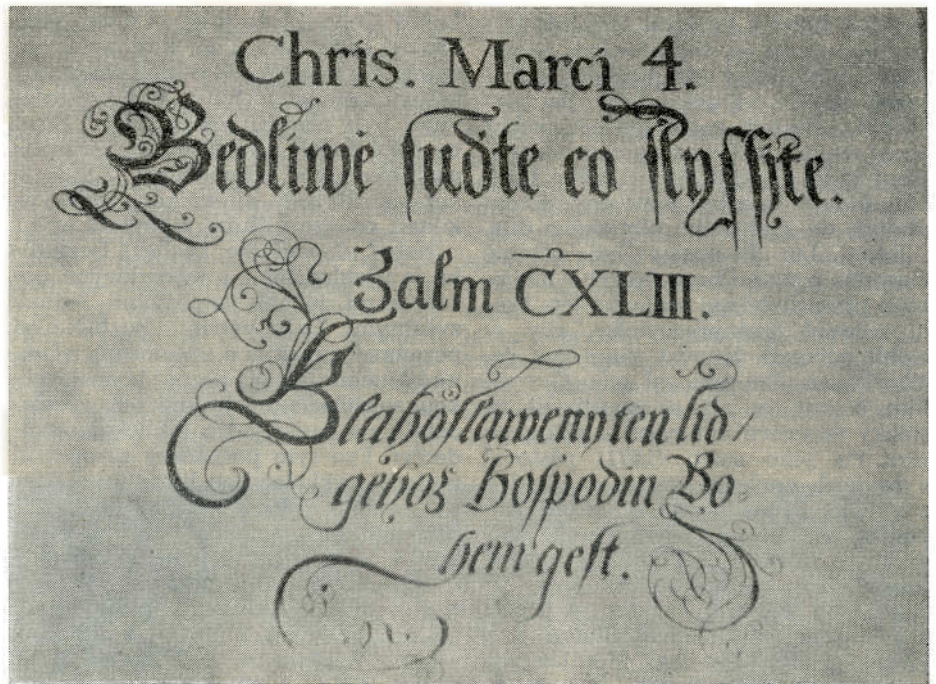 Chris. Marci 4.
Bedliwě ſuďte co ſlyſſjte.
Zalm CXLIII.
Blahoſlaweny ten lid /
gehož Hoſpodin Bo-
hem geſt.